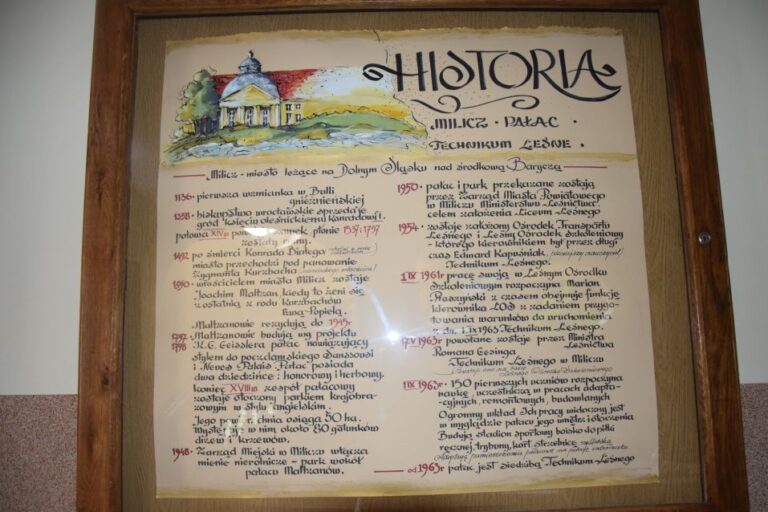 HISTORIA
MILICZ · PAŁAC ·
TECHNIKUM LEŚNE ·
Milicz - miasto leżące na Dolnym Śląsku nad środkową Baryczą
1136 - pierwsza wzmianka w Bulli
gnieźnieńskiej
1358 - biskupstwo wrocławskie sprzedaje
gród księciu oleśnickiemu Konradowi I.
połowa XIV w zamek płonie 1537 i 1797
zostały ruiny.
1492 po śmierci Konrada Białego
miasta przechodzi pod panowanie
Zygmunta Kurzbacha
właścicielem miasta Milicz zostaje
Joachim Maltzan kiedy to żeni się
z ostatnią z rodu Kurzbachów
Ewą-Popielą.
Maltzanowie rezydują do 1945r.
1797 Maltzanowie budują wg projektu
1798 K.G. Geisslera pałac nawiązujący
stylem do poczdamskiego Sanssousi
i Neves Palais. Pałac posiada
dwa dziedzińce: honorowy i herbowy.
koniec XVIII w zespół pałacowy
zostaje otoczony parkiem krajobra-
zowym w stylu angielskim.
Jego pow. do dnia osiąga 50 ha.
Występuje w nim około 80 gatunków
drzew i krzewów.
1948 - Zarząd Miejski w Miliczu włącza
mienie nierolnicze - park wokół
pałacu Maltzanów.
1950 - pałac i park przekazane zostają
przez Zarząd Miasta Powiatowego
w Miliczu Ministerstwu Leśnictwa
celem założenia Liceum Leśnego
1954 - zostaje założony Ośrodek Transportu
Leśnego i Leśny Ośrodek Szkoleniowy
- którego kierownikiem był przez długi
czas Edward Kapuśniak
Technikum Leśnego.
1 IX 1961r pracę swoją w Leśnym Ośrodku
Szkoleniowym rozpoczyna Marian
Raszyński z czasem obejmuje funkcję
kierownika LOS z zadaniem przygo-
towania warunków do uruchomienia
z dn. 1.IX 1963 Technikum Leśnego.
1963r powołane zostaje przez Ministra
Leśnictwa
Romana Gesinga
Technikum Leśnego w Miliczu
1 IX 1963r - 150 pierwszych uczniów rozpoczyna
naukę, uczestnicząc w pracach adapta-
cyjnych, remontowych, budowlanych
Ogromny wkład Ich pracy widoczny jest
w wyglądzie pałacu jego wnętrz i otoczenia
Budują stadion sportowy boisko do piłki
ręcznej, trybuny, kort, strzelnicę
od 1963r pałac jest siedzibą Technikum Leśnego